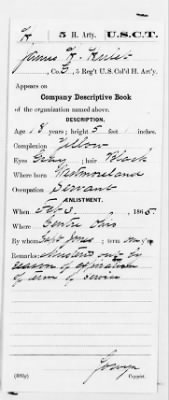 K. 5 H. Arty. U.S.C.T.
James K.
, Co. G, 5 Reg't U.S. Col'd H. Art'y.
Appears on
Company Descriptive Book
of the organization named above.
DESCRIPTION.
Age 18 years; height 5 feet inches.
Complexion Yellow
Eyes Grey; hair Black
Where born Westmoreland
Occupation Servant
ENLISTMENT.
When Feb 3, 1865.
Where Centre Ohio
By whom Capt Jones; term One y'rs.
Remarks: Mustered out by
reason of expiration
of term of service
(383g) Copyist.